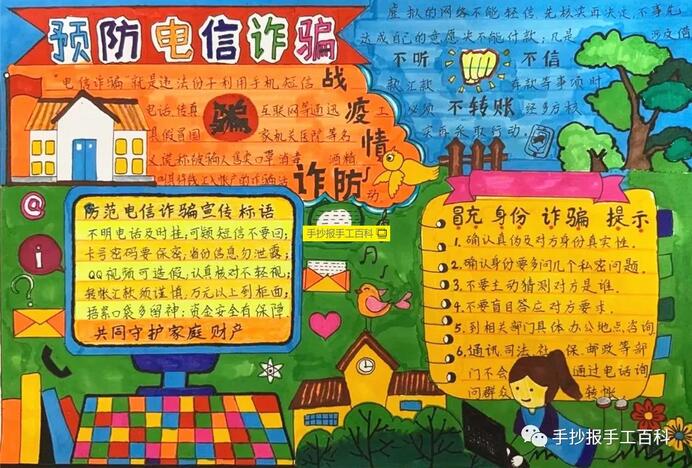 预防电信诈骗
"电信诈骗"就是违法份子利用手机短信
电话、传真 互联网等通迅工
具假冒国 家机关医院等名
义谎称被骗人售卖口罩消毒 酒精
骗
战
疫情
诈防
虚拟的网络不能轻信,先核实再决定,不事先
达成自己的意愿决不能付款;凡是 涉及借
不听 不信
款汇款 存款等事项时
必须 不转账 经多方核
实再采取行动。
防范电信诈骗宣传标语
不明电话及时挂;可疑短信不要回;
卡号密码要保密;省份信息勿泄露;
QQ视频可造假,认真核对不轻视;
转帐汇款须谨慎,万元以上到柜面;
捂紧口袋多留神;资金安全有保障
共同守护家庭财产
手抄报手工百科
冒充身份诈骗提示
1.确认真伪及对方身份真实性。
2.确认身份要多问几个私密问题。
3.不要主动猜测对方是谁。
4.不要盲目答应对方要求。
5.到相关部门具体办公地点咨询
6.通讯、司法、社保、邮政等部
门不会 通过电话询
问群众 转帐
@
i
手抄报手工百科